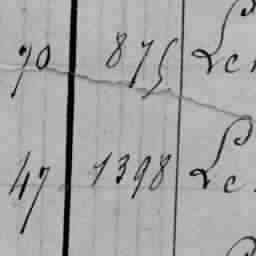 70 875 Le
47 1398 Le